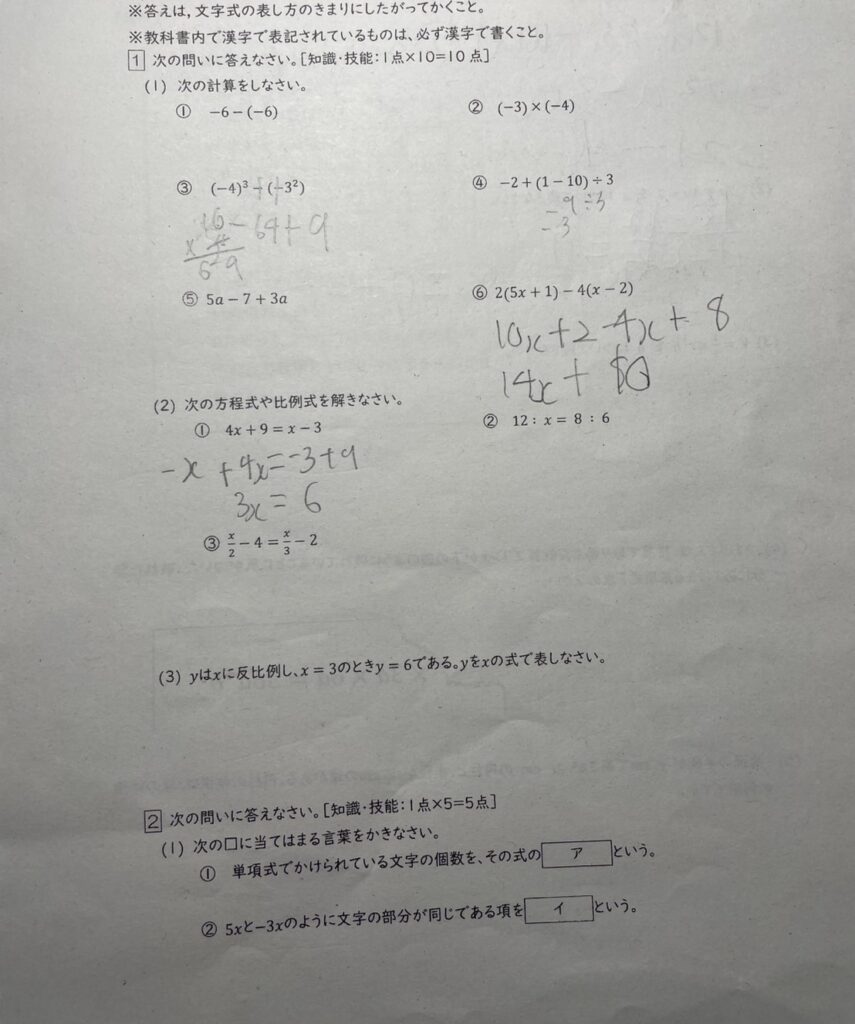 ※答えは,文字式の表し方のきまりにしたがってかくこと。
※教科書内で漢字で表記されているものは、必ず漢字で書くこと。
1 次の問いに答えなさい。[知識・技能:1点×10=10点]
(1) 次の計算をしなさい。
① −6−(−6)
② (−3)×(−4)
③ (−4)³−(−3²)
④ −2+(1−10)÷3
−64+9
−9÷3
=−3
⑤ 5a−7+3a
⑥ 2(5x+1)−4(x−2)
10x+2−4x+8
14x+10
(2) 次の方程式や比例式を解きなさい。
① 4x+9=x−3
② 12:x=8:6
−x+4x=−3+9
3x=6
③ x/2−4=x/3−2
(3) yはxに反比例し、x=3のときy=6である。yをxの式で表しなさい。
2 次の問いに答えなさい。[知識・技能:1点×5=5点]
(1) 次の□に当てはまる言葉をかきなさい。
① 単項式でかけられている文字の個数を、その式の ア という。
② 5xと−3xのように文字の部分が同じである項を イ という。